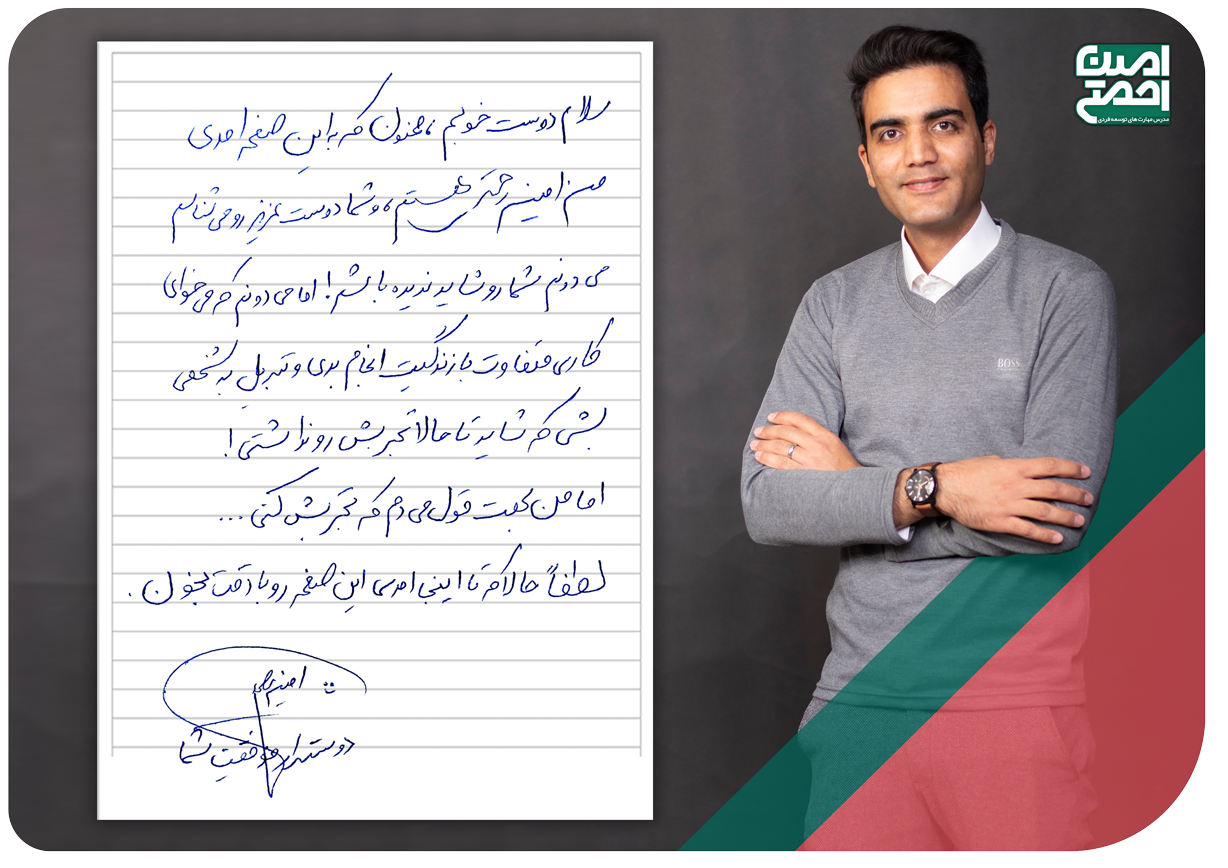 سلام دوست خوبم، ممنون که به این صفحه اومدی
من امین رحمتی هستم، و شما دوست عزیز رو می شناسم
می دونم شما رو شاید ندیده باشم! اما می دونم که می خوای
کاری متفاوت با زندگیت انجام بدی و تبدیل به شخصی
بشی که شاید تا حالا تجربش رو نداشتی!
اما من بهت قول می دم که تجربش کنی ...
لطفاً حالا که تا اینجا اومدی این صفحه رو با دقت بخون.
امین
دوستدار موفقیت شما
امین
مدرس مهارت های توسعه فردی
BOSS